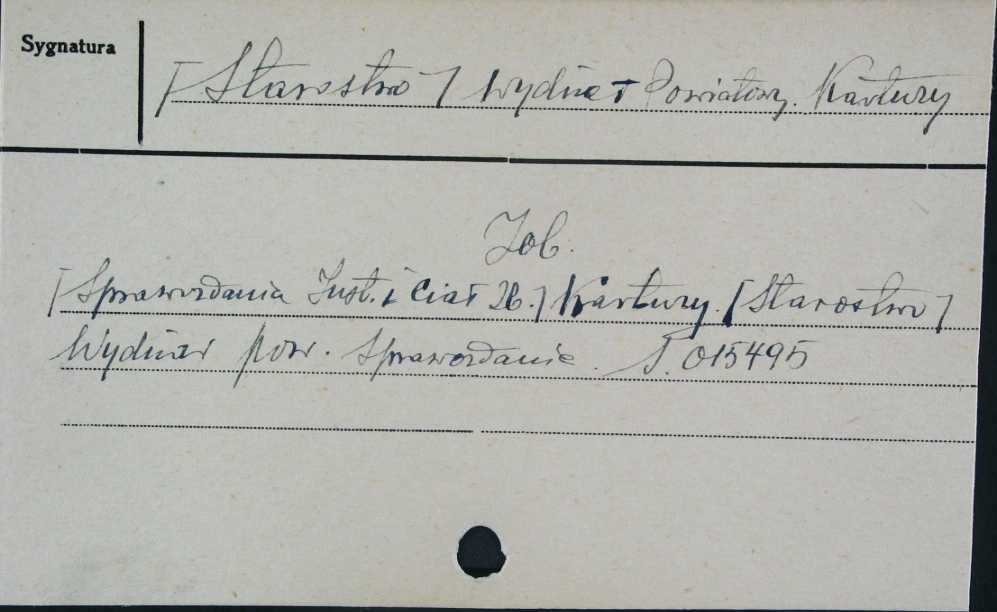 Sygnatura
[Starostwo] Wydział Powiatowy. Kartuzy
Zob.
[Sprawozdania Inst. i Ciał Zb.] Kartuzy. [Starostwo]
Wydział pow. Sprawozdanie. S. 015495